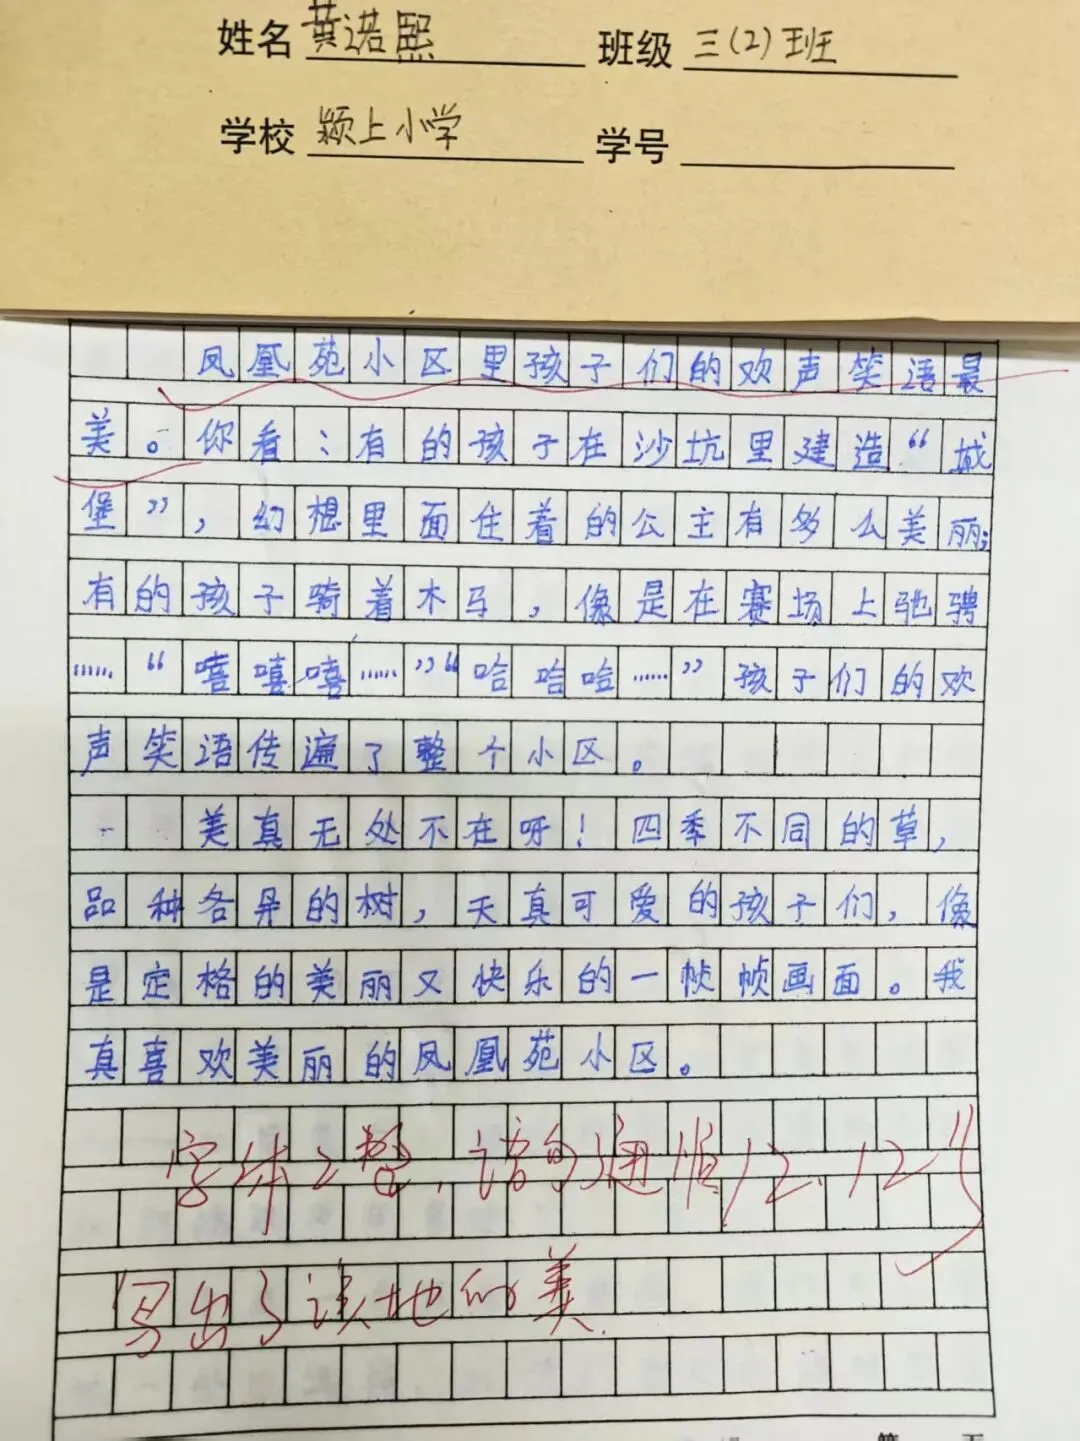 姓名 黄诺熙 班级 三(2)班
学校 颍上小学 学号
凤凰苑小区里孩子们的欢声笑语最
美。你看：有的孩子在沙坑里建造“城
堡”，幻想里面住着的公主有多么美丽；
有的孩子骑着木马，像是在赛场上驰骋
……“嘻嘻嘻……”“哈哈哈……”孩子们的欢
声笑语传遍了整个小区。
美真无处不在呀！四季不同的草，
品种各异的树，天真可爱的孩子们，像
是定格的美丽又快乐的一帧帧画面。我
真喜欢美丽的凤凰苑小区。
字体工整，语句通顺 12.12
写出了该地的美.